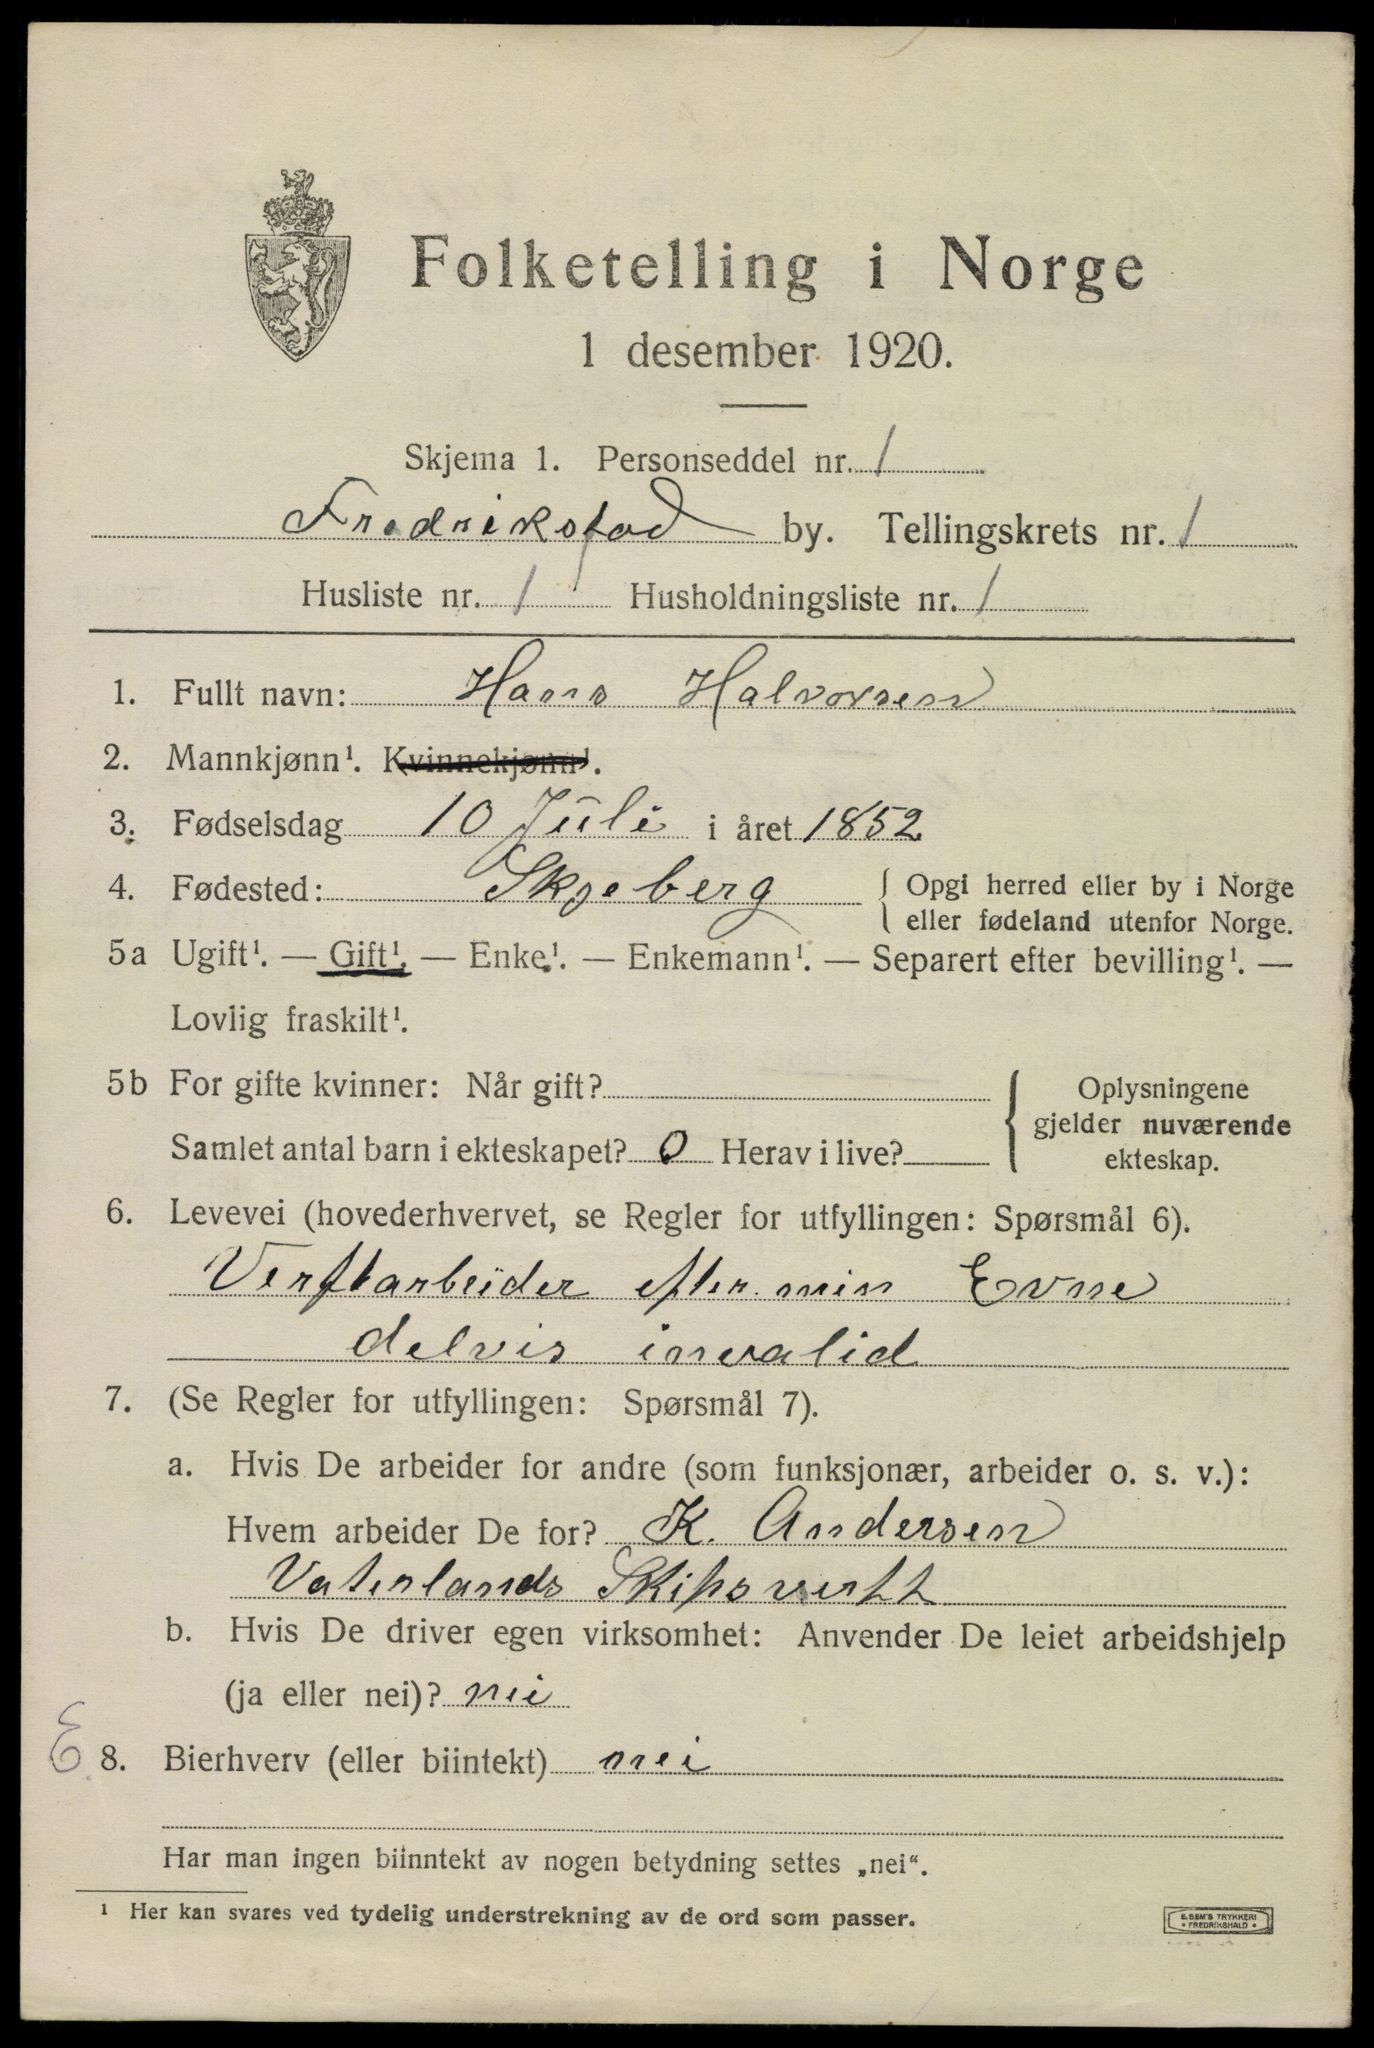 Folketelling i Norge
1 desember 1920.
Skjema 1. Personseddel nr. 1
Fredrikstad by. Tellingskrets nr. 1
Husliste nr. 1 Husholdningsliste nr. 1
1. Fullt navn: Hans Halvorsen
2. Mannkjønn¹. Kvinnekjønn¹.
3. Fødselsdag 10 Juli i året 1852
4. Fødested: Skjeberg { Opgi herred eller by i Norge
eller fødeland utenfor Norge.
5a Ugift¹. — Gift¹. — Enke¹. — Enkemann¹. — Separert efter bevilling¹. —
Lovlig fraskilt¹.
5b For gifte kvinner: Når gift?
Samlet antal barn i ekteskapet? 0 Herav i live?
{ Oplysningene
gjelder nuværende
ekteskap.
6. Levevei (hovederhvervet, se Regler for utfyllingen: Spørsmål 6).
Verftarbeider efter min Evne
delvis invalid
7. (Se Regler for utfyllingen: Spørsmål 7).
a. Hvis De arbeider for andre (som funksjonær, arbeider o. s. v.):
Hvem arbeider De for? K. Andersen
Vaterlands Skipsverft
b. Hvis De driver egen virksomhet: Anvender De leiet arbeidshjelp
(ja eller nei)? nei
E 8. Bierhverv (eller biintekt) nei
Har man ingen biinntekt av nogen betydning settes „nei“.
¹ Her kan svares ved tydelig understrekning av de ord som passer.
E. SEM'S TRYKKERI
• FREDRIKSHALD •